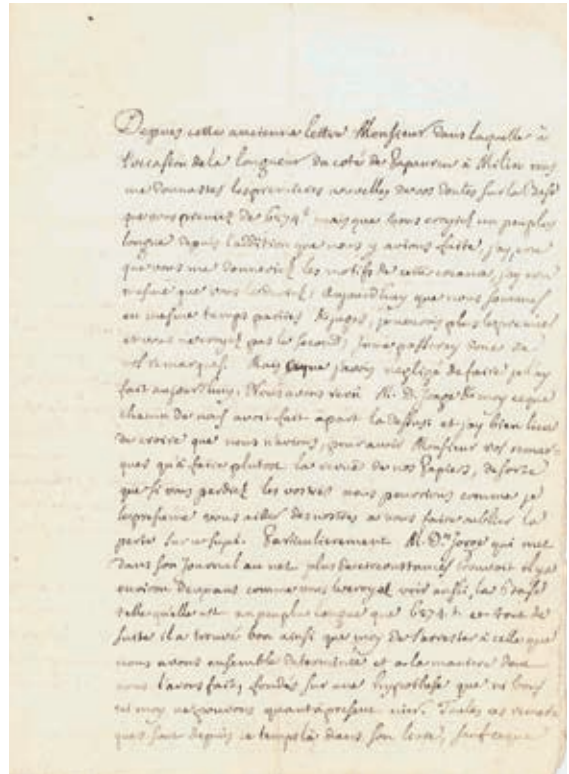 Depuis cette ancienne lettre Monsieur dans laquelle à
l'occasion de la longueur du coté de à Milin vous
me donnastes les premieres nouvelles de vos doutes sur la base
que vous preniez de 6274 mais que vous croyiez un peu plus
longue depuis l'addition que nous y avions faite, j'ay cru
que vous me donneriez les motifs de cette j'ay cru
mesme que vous Aujourdhuy que nous sommes
en mesme temps parties & juges, plus le premier
et vous ne croyez pas le second, je me passeray donc de
vos remarques. Mais ce que j'avois negligé de faire je l'ay
fait aujourdhuy. Nous avons revû M. D. George & moy ce que
chacun de nous avoit fait apart la dessus et j'ay bien lieu
de croire que nous n'avions, pour avoir Monsieur vos remar-
ques qu'à faire plutost la revuë de nos papiers, de sorte
que si vous perdiez les vostres nous pourrions comme je
vous aider des nostres a vous faire oublier la
perte sur ce sujet. Particulierement M. Dn George qui met
dans son Journal au net plus de circonstances trouvoit il y a
environ deux ans comme vous le voyez icy aussi, la base
telle qu'elle est un peu plus longue que 6274 t. et tout de
suite il a trouvé bon ainsi que moy de l'arrester à celle que
nous avons ensemble determinée et a la maniere dont
nous l'avons fait, fondés sur une hypothese que ni vous
ni moy ne pouvons quant à present nier. Toutes ces remar-
ques sont depuis ce temps là dans son livre, sauf ce que